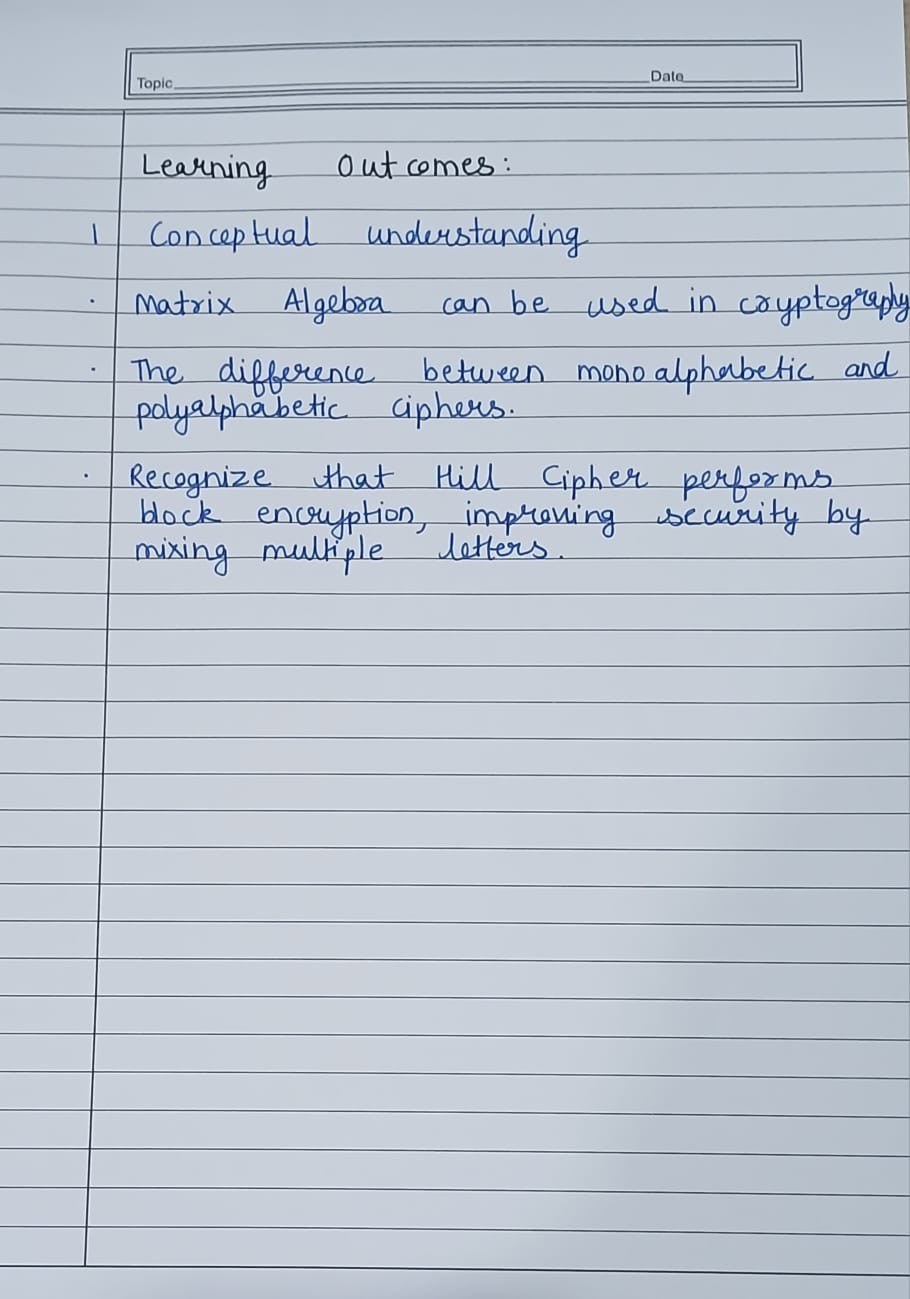 Topic Date
Learning Outcomes:
1 Conceptual understanding
· Matrix Algebra can be used in cryptography
· The difference between monoalphabetic and
polyalphabetic ciphers.
· Recognize that Hill Cipher performs
block encryption, improving security by
mixing multiple letters.